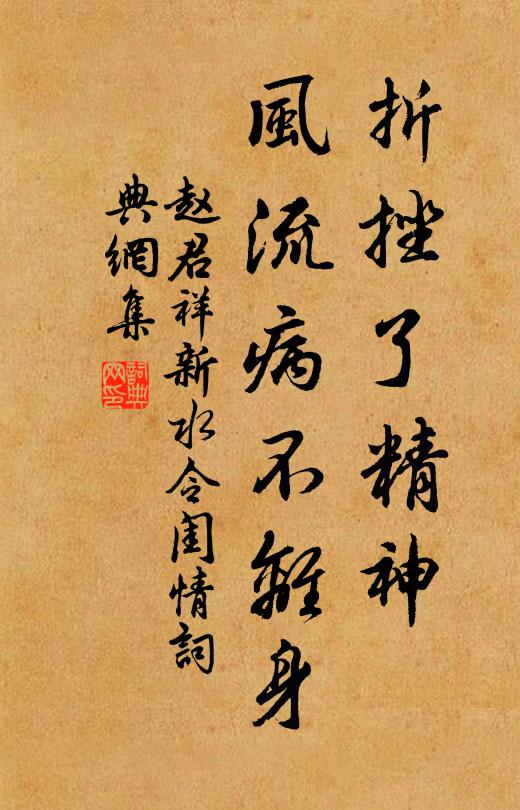 折挫了精神
風流病不離身
赵君祥新水令閨情詞
典網集
詞典
网印